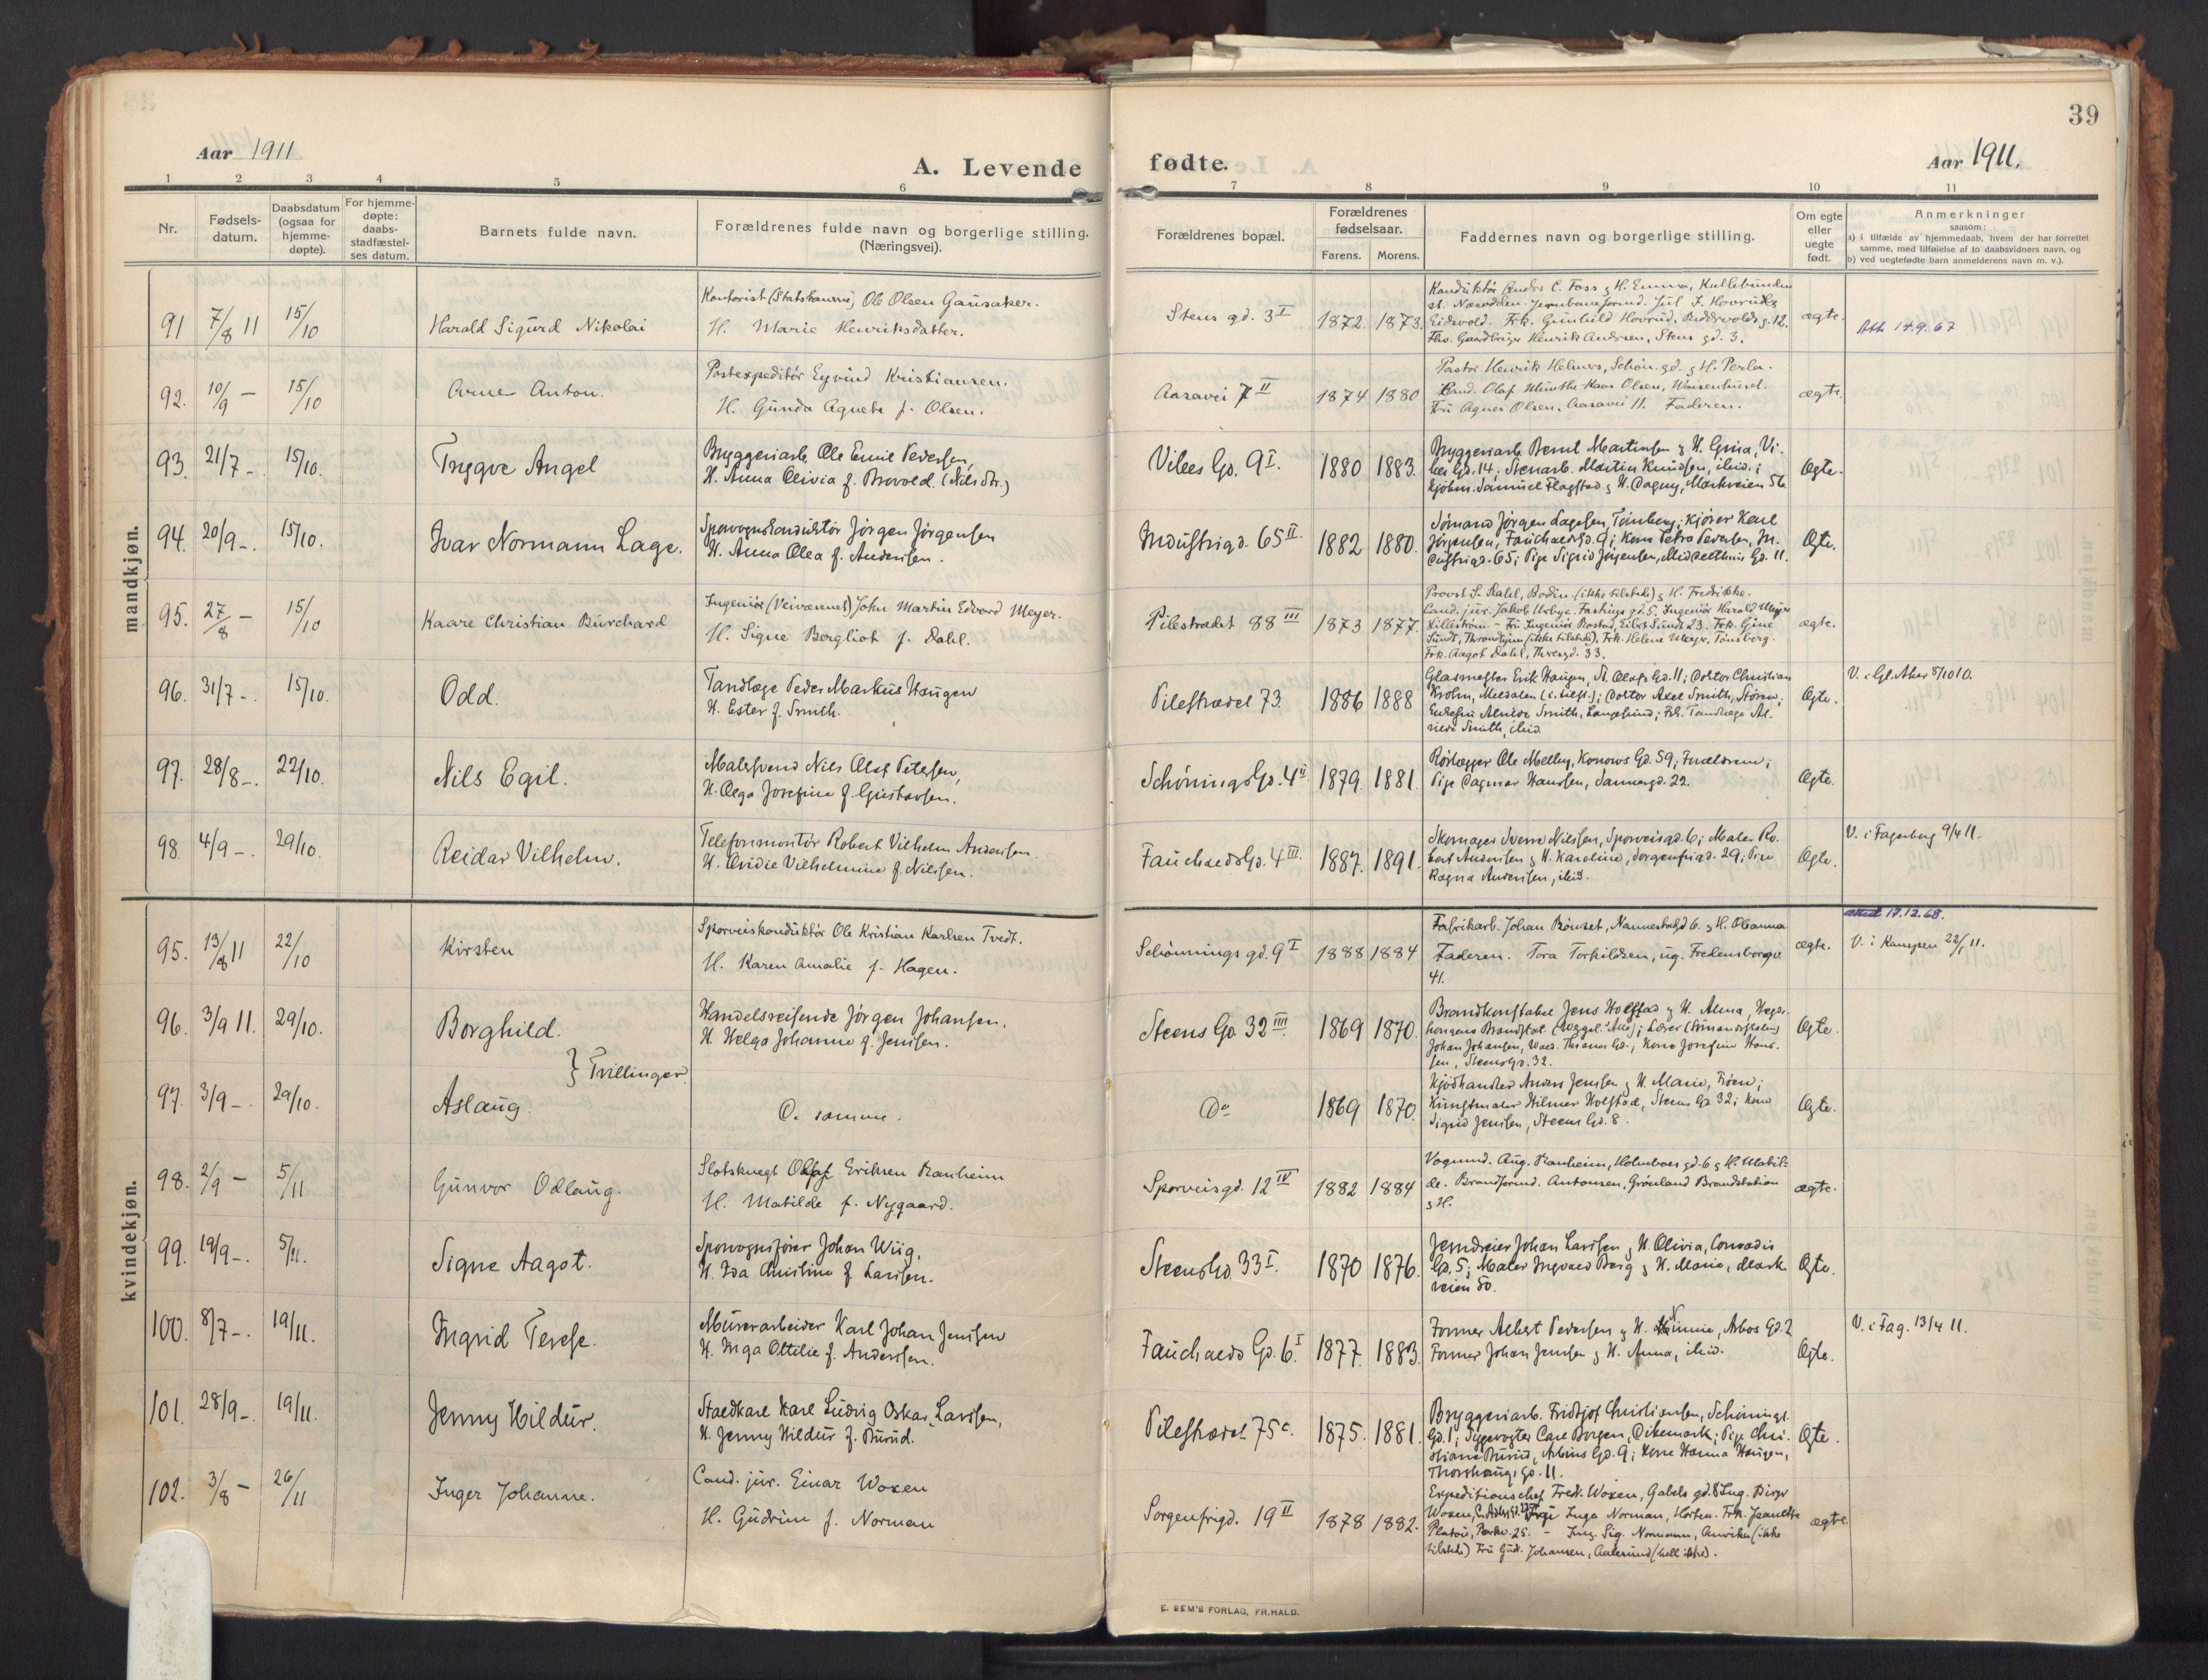 39
Aar 1911
A. Levende
fødte.
Aar 1911.
1 2 3 4 5 6 7 8 9 10 11
Nr.
Fødsels-
datum.
Daabsdatum
(ogsaa for
hjemme-
døpte).
For hjemme-
døpte:
daabs-
stadfæstel-
ses datum.
Barnets fulde navn.
Forældrenes fulde navn og borgerlige stilling.
(Næringsvei).
Forældrenes bopæl.
Forældrenes
fødselsaar.
Farens. Morens.
Faddernes navn og borgerlige stilling.
Om egte
eller
uegte
født.
Anmerkninger
saasom:
a) i tilfælde av hjemmedaab, hvem der har forrettet
samme, med tilføielse af to daabsvidners navn, og
b) ved uegtefødte barn anmelderens navn m. v.).
mandkjøn.
91 7/8 11 15/10 Harald Sigurd Nikolai
Kontorist (Statsbanerne) Ole Olsen Gausaker.
H. Marie Henriksdatter.
Stens gd. 3 I 1872. 1873.
Eidsvold. Frk. Gunhild Hovrud.
Henrik Andersen, Stens gd. 3.
ægte.
14.9.67
92. 10/9 — 15/10 Arne Anton.
Postexpeditør Eyvind Kristiansen.
H. Gunda Agnete f. Olsen.
Aasavei 7 II 1874 1880
Pastor Henrik Helmers, Schøn. gd. & H. Perla.
Cand. Olaf Munthe Kaas Olsen, Waisenhuset.
Fru Agnes Olsen, Aasavei 11. Faderen.
ægte.
93. 21/7 -. 15/10. Trygve Angel
Bryggeriarb. Ole Emil Pedersen,
H. Anna Olivia f. Brovold. (Nils Str.)
Vibes Gd. 9 I. 1880 1883.
Bryggeriarb. Bernt Martinsen & H. Gina, Vi-
bes Gd. 14; Stenarb. Martin Knudsen, ibid.;
Kjøbm. Samuel Flagstad & H. Dagny, Markveien 56.
Ægte.
94. 20/9 -. 15/10. Ivar Normann Lage.
Sporvognskonduktør Jørgen Jørgensen
H. Anna Olea f. Andersen.
Industrigd. 65 II. 1882 1880.
Sømand Jørgen Lagesen, Tønsberg; Kjører Karl
Jørgensen, Fauchalds Gd. 9; Kone Petra Pedersen, In-
dustrigd. 65; Pige Sigrid Jørgensen, Gd. 11.
Ægte.
95. 27/8 — 15/10 Kaare Christian Burchard
Ingeniør (Veivæsenet) John Martin Edvard Meyer.
H. Signe Borgliot f. Dahl.
Pilestrædet 88 III 1873 1877.
Provst S. Dahl, Bodin. (ikke tilstede) & H. Fredrikke.
Cand. jur. Jakob Urbye. Fastings gd. 5. Ingeniør Harald Meyer
Lillestrøm. – Fru Ingeniør Bostad, Eilert Sundt 23. Frk. Gine
Sundt, Throndhjem (ikke tilstede), Frk. Helene Meyer. Tønsberg.
Frk. Aagot Dahl, Theresgd. 33.
ægte.
96. 31/7 -. 15/10. Odd.
Tandlæge Peder Markus Haugen
H. Ester f. Smith.
Pilestrædet 73. 1886 1888
Glasmester Erik Haugen, St. Olafs Gd. 11; Doktor Christian
Krohn, Meldalen (i. tilst.); Doktor Axel Smith,
Enkefru Alvide Smith, Langesund; Frk. Tandlæge Al-
vilde Smith, ibid.
Ægte.
V. i Gl. Aker 8/10 10.
97. 28/8 -. 22/10. Nils Egil.
Malersvend Nils Olaf Petersen,
H. Olga Josefine f. Gustavsen.
Schønings Gd. 4 II 1879. 1881.
Rørlægger Ole Melby, Konows Gd. 59; Forældrene;
Pige Dagmar Hanssen, Sannergd. 22.
Ægte.
98. 4/9 -. 29/10. Reidar Vilhelm.
Telefonmontør Robert Vilhelm Andersen.
H. Ovidie Vilhelmine f. Nilssen.
Fauchalds Gd. 4 III. 1887. 1891.
Skomager Sverre Nilssen, Sporveisgd. 6; Maler Ro-
bert Andersen & H. Karoline, Sorgenfrigd. 29; Pige
Ragna Andersen, ibid.
Ægte.
V. i Fagerborg 9/4 11.
kvindekjøn.
95. 13/8 11 22/10 Kirsten
Sporveiskonduktør Ole Kristian Karlsen Tvedt.
H. Karen Amalie f. Hagen.
Schønnings gd. 9 I 1888 1884
Fabrikarb. Johan Rønset, Nannestadgd 6. & H. Oleanna
Faderen. Tora Torkildsen, ug. Fredensborgv.
41.
ægte.
17.12.68.
V. i Kampen 22/1 11.
96. 3/9 11. 29/10. Borghild.
Handelsreisende Jørgen Johansen.
H. Helga Johanne f. Jenssen.
Steens Gd. 32 IIII 1869 1870.
Brandkonstabel Jens Holstad & H. Alma,
Johan Johansen, Gd.; Kone Josefine Hans-
sen, Steens Gd. 32.
Ægte.
} Tvillinger.
97. 3/9 -. 29/10. Aslaug.
D. samme.
Do 1869 1870.
Kjødhandler Anders Jenssen & H. Marie, Frøen;
Kunstmaler Hilmer Holstad, Steens Gd. 32; Kone
Sigrid Jenssen, Steens Gd. 8.
Ægte.
98. 2/9 — 5/11 Gunvor Odlaug.
Slotsknegt Olaf Eriksen Ranheim
H. Matilde f. Nygaard.
Sporveisgd. 12 IV 1882 1884
Vognmd. Aug. Ranheim, Holmboes gd. 6 & H. Matil-
de. Brandformd. Antonsen, Grønland Brandstation
& H.
ægte.
99. 19/9 -. 5/11. Signe Aagot.
Sporvognsfører Johan Wiig,
H. Ida Christine f. Larssen.
Steens Gd. 33 I. 1870 1876.
Jerndreier Johan Larssen & H. Olivia, Conradis
Gd. 5; Maler Ingvald Berg & H. Marie, Mark-
veien 50.
Ægte.
100. 8/7 -. 19/11. Ingrid Terese.
Murerarbeider Karl Johan Jenssen
H. Inga Ottilie f. Anderssen.
Fauchalds Gd. 6 I. 1877. 1883.
Former Albert Pedersen & H. Minnie, Arbos Gd. 2
Former Johan Jenssen & H. Anna, ibid.
Ægte.
V. i Fag. 13/4 11.
101. 28/9 -. 19/11. Jenny Hildur.
Staldkarl Karl Ludvig Oskar Larssen,
H. Jenny Hildur f. Burud.
Pilestrædet 75 c. 1875. 1881.
Bryggeriarb. Fridtjof Christiansen, Schønings
Gd. 1; Sygevogter Carl Borgen, Dikemark; Pige Chri-
stiane Burud, Arbins Gd. 9; Kone Hanna Haugen,
Thorshaugs Gd. 11.
Ægte.
102. 3/8 — 26/11 Inger Johanne.
Cand. jur. Einar Woxen
H. Gudrun f. Norman
Sorgenfrigd. 19 II 1878 1882.
Expeditionschef Fred. Woxen, Gabels gd. 8 Ing. Birger
Woxen, Fru Inga Norman, Horten. Frk. Jeanette
Platou, Parkv. 25. – Ing. Sig. Normann, Amerika (ikke
tilstede) Fru Gudr. Johansen, Aalesund (hell ikke).
ægte.
E. SEM'S FORLAG, FR.HALD.